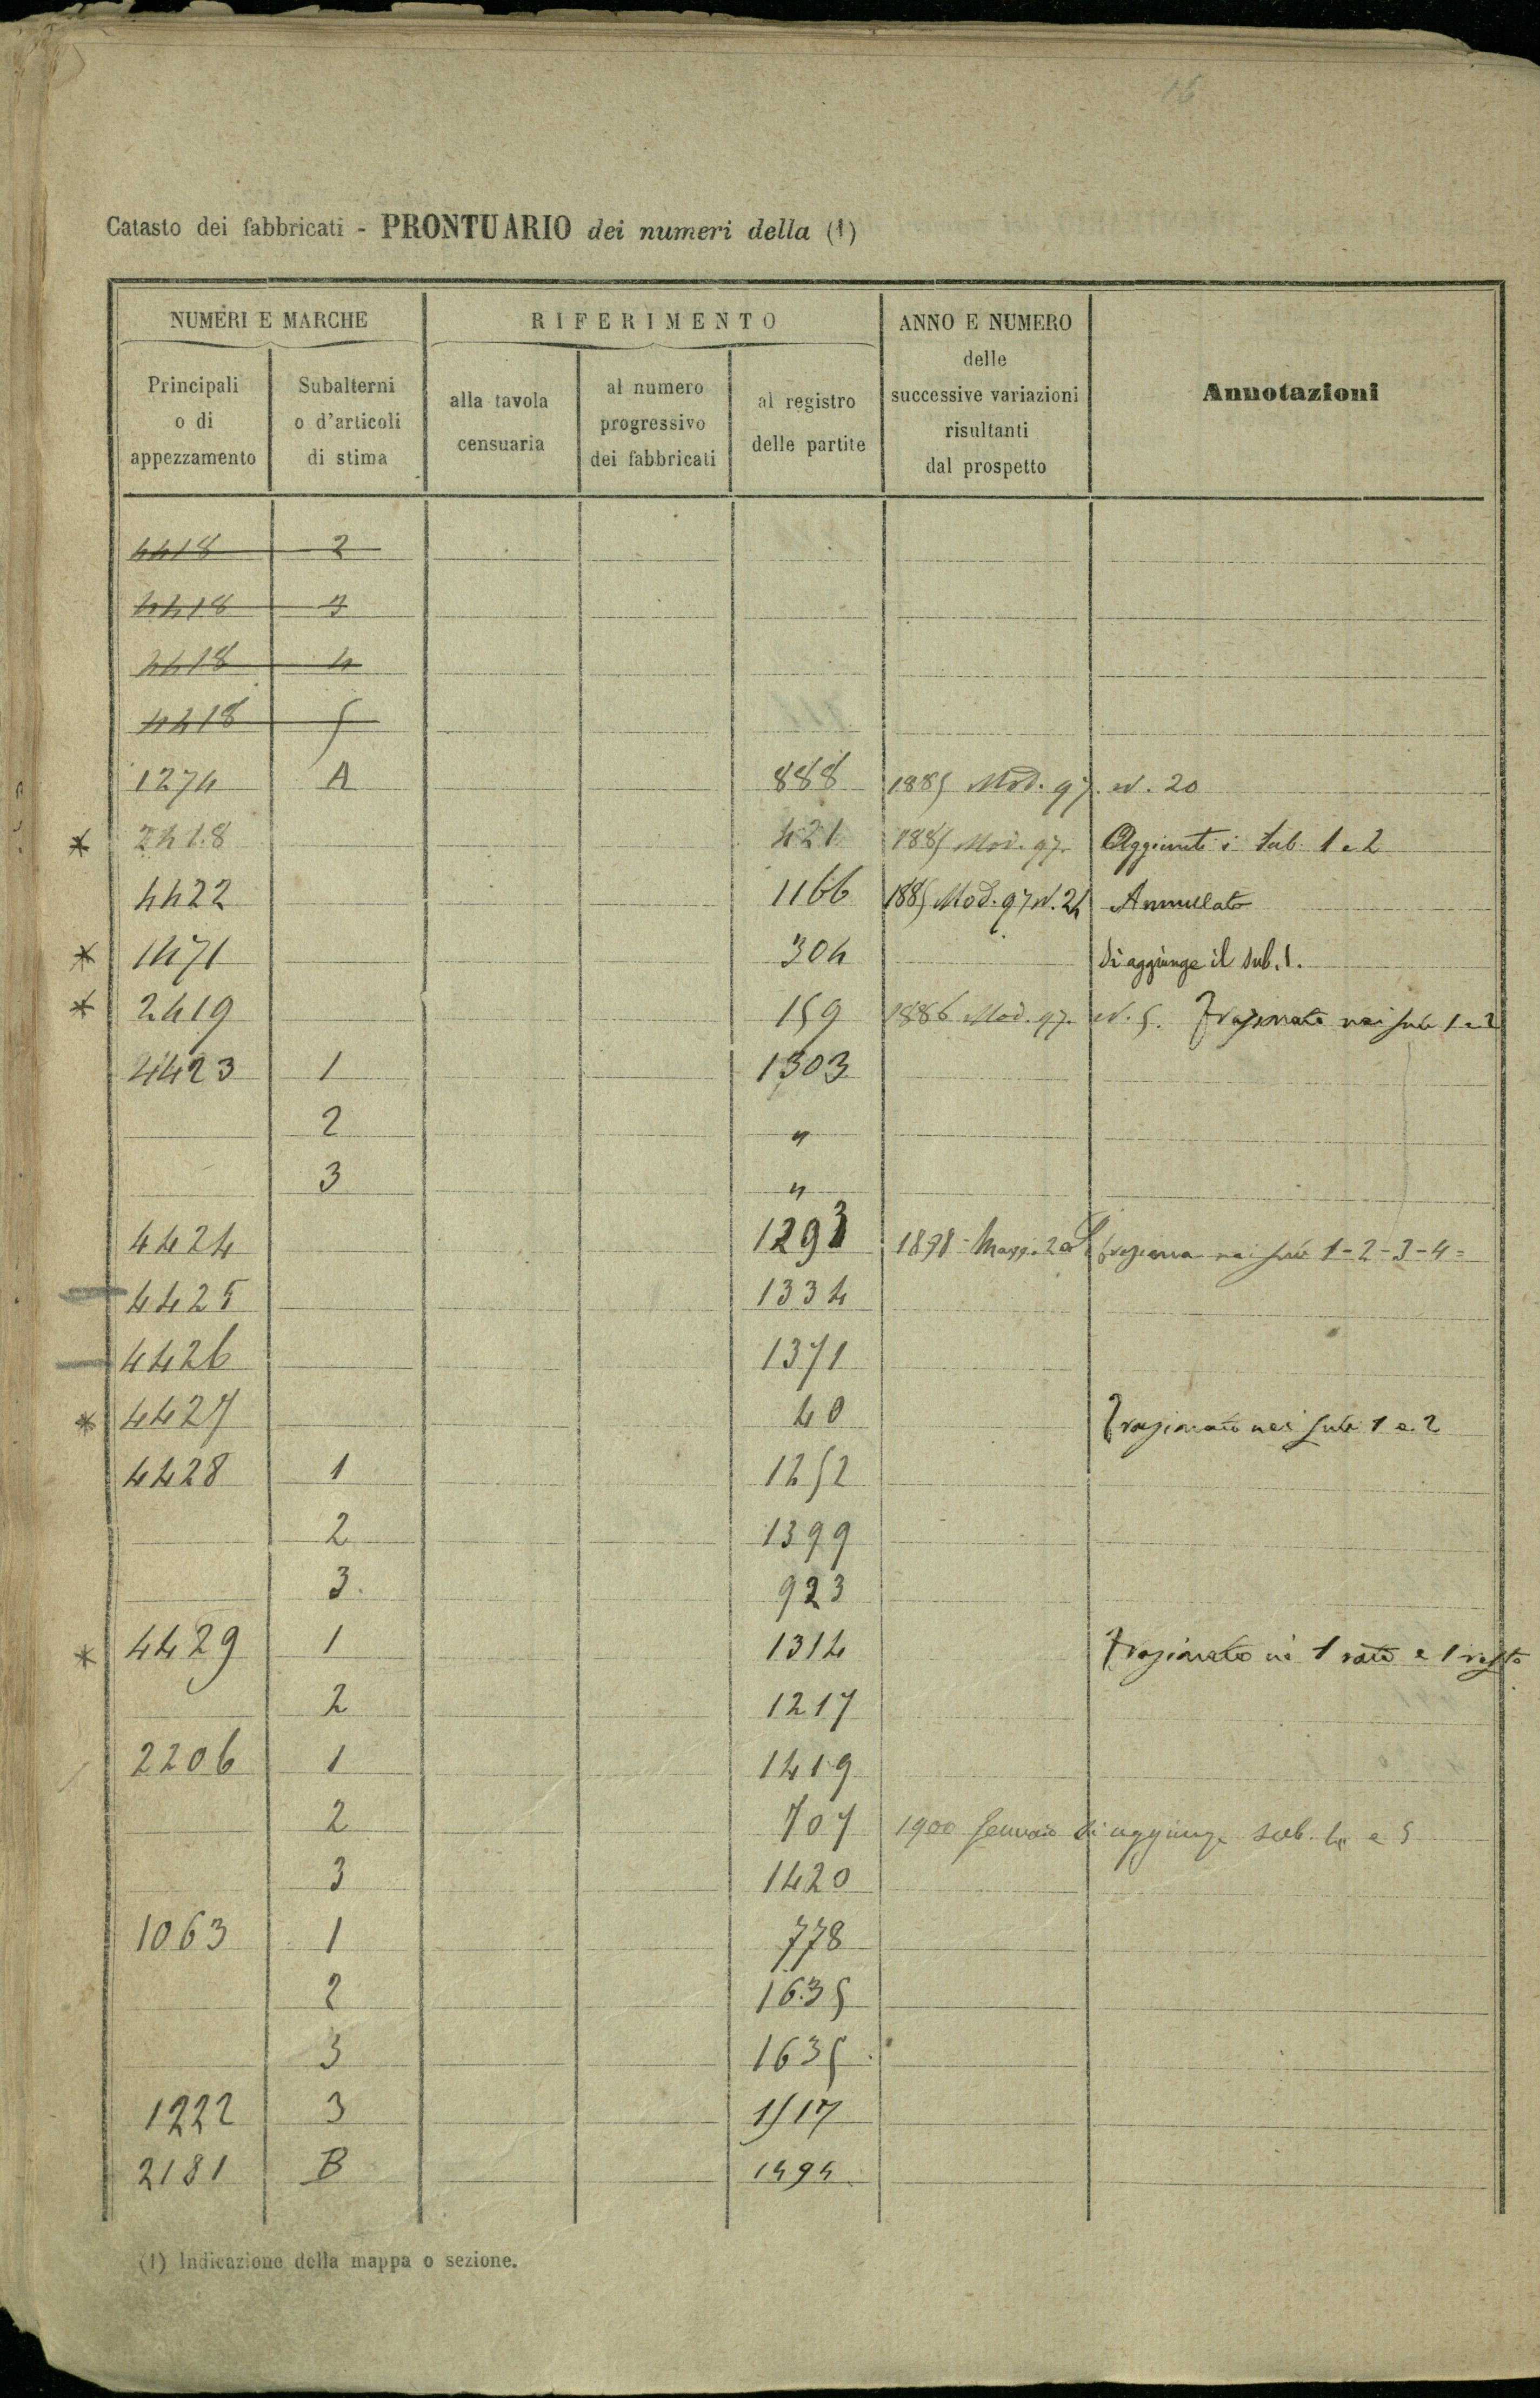 16
Catasto dei fabbricati - PRONTUARIO dei numeri della (1)
NUMERI E MARCHE
RIFERIMENTO
ANNO E NUMERO
delle
successive variazioni
risultanti
dal prospetto
Annotazioni
Principali
o di
appezzamento
Subalterni
o d'articoli
di stima
alla tavola
censuaria
al numero
progressivo
dei fabbricati
al registro
delle partite
4418 2
4418 3
4418 4
4418 5
1274 A 888 1885 Mod. 97. N. 20
* 2418 421 1885 Mod. 97. Aggiunti i sub. 1 e 2
4422 1166 1885 Mod. 97 N. 24 Annullato
* 1471 304 Si aggiunge il sub. 1.
* 2419 159 1886 Mod. 97. N. 5. Frazionato nei sub 1 e 2
4423 1 1303
2 "
3 "
4424 1293 1898 - Magg. 20 Si fraziona nei sub 1-2-3-4=
4425 1334
4426 1371
* 4427 40 Frazionato nei sub 1 e 2
4428 1 1252
2 1399
3. 923
* 4429 1 1314 Frazionato in 1 rata e 1 resto
2 1217
2206 1 1419
2 707 1900 Gennaio Si aggiunge sub. 4 e 5
3 1420
1063 1 778
2 1635
3 1635
1222 3 1517
2181 B 1494
(1) Indicazione della mappa o sezione.